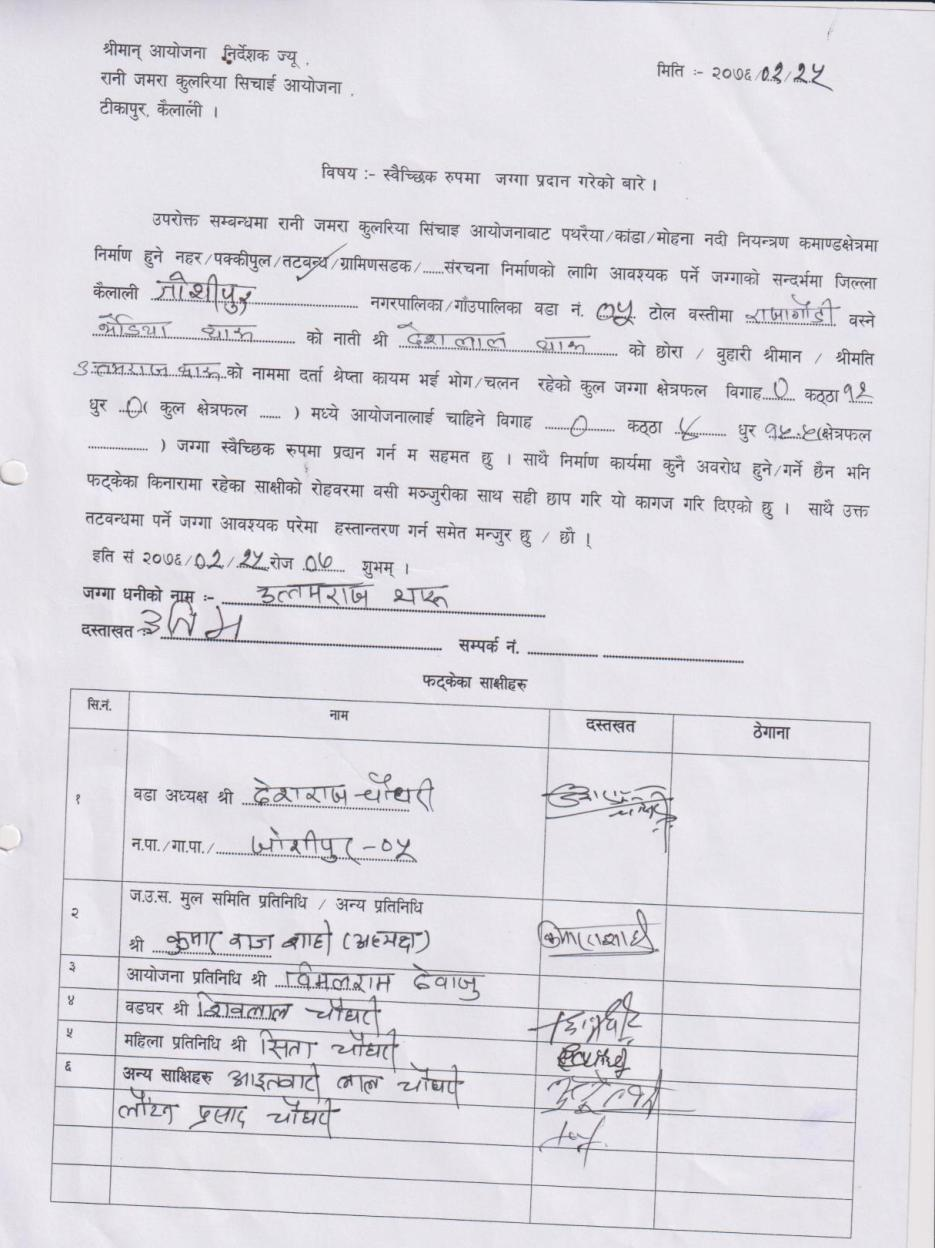 श्रीमान् आयोजना निर्देशक ज्यू ,
रानी जमरा कुलरिया सिचाई आयोजना ,
टीकापुर, कैलाली ।
मिति :- २०७६/०२/२५
विषय :- स्वैच्छिक रुपमा जग्गा प्रदान गरेको बारे ।
उपरोक्त सम्बन्धमा रानी जमरा कुलरिया सिंचाइ आयोजनावाट पथरैया/कांडा/मोहना नदी नियन्त्रण कमाण्डक्षेत्रमा
निर्माण हुने नहर/पक्कीपुल/तटवन्ध/ग्रामिणसडक/......संरचना निर्माणको लागि आवश्यक पर्ने जग्गाको सन्दर्भमा जिल्ला
कैलाली जोशीपुर नगरपालिका/गाँउपालिका वडा नं. ०५ टोल वस्तीमा वस्ने
को नाती श्री देशलाल थारू को छोरा / बुहारी श्रीमान / श्रीमति
उत्तमराज थारू को नाममा दर्ता श्रेष्ता कायम भई भोग/चलन रहेको कुल जग्गा क्षेत्रफल विगाह 0 कठ्ठा १२
धुर 0 ( कुल क्षेत्रफल ...... ) मध्ये आयोजनालाई चाहिने विगाह 0 कठ्ठा धुर (क्षेत्रफल
................ ) जग्गा स्वैच्छिक रुपमा प्रदान गर्न म सहमत छु । साथै निर्माण कार्यमा कुनै अवरोध हुने/गर्ने छैन भनि
फट्केका किनारामा रहेका साक्षीको रोहवरमा वसी मञ्जुरीका साथ सही छाप गरि यो कागज गरि दिएको छु । साथै उक्त
तटवन्धमा पर्ने जग्गा आवश्यक परेमा हस्तान्तरण गर्न समेत मन्जुर छु / छौ ।
इति सं २०७६/०२/२५ रोज ०७ शुभम् ।
जग्गा धनीको नाम :- उत्तमराज थारू
दस्ताखत :- उत्तिम सम्पर्क नं. ..................
फट्केका साक्षीहरु
सि.नं. नाम दस्तखत ठेगाना
१ वडा अध्यक्ष श्री देशराज चौधरी
न.पा./गा.पा./ जोशीपुर -०५
२ ज.उ.स. मुल समिति प्रतिनिधि / अन्य प्रतिनिधि
श्री कुमार राज शाही (अध्यक्ष)
३ आयोजना प्रतिनिधि श्री विमलराम देवाजु
४ वडघर श्री शिवलाल चौधरी
५ महिला प्रतिनिधि श्री सिता चौधरी
६ अन्य साक्षिहरु लाल चौधरी
लौटन प्रसाद चौधरी